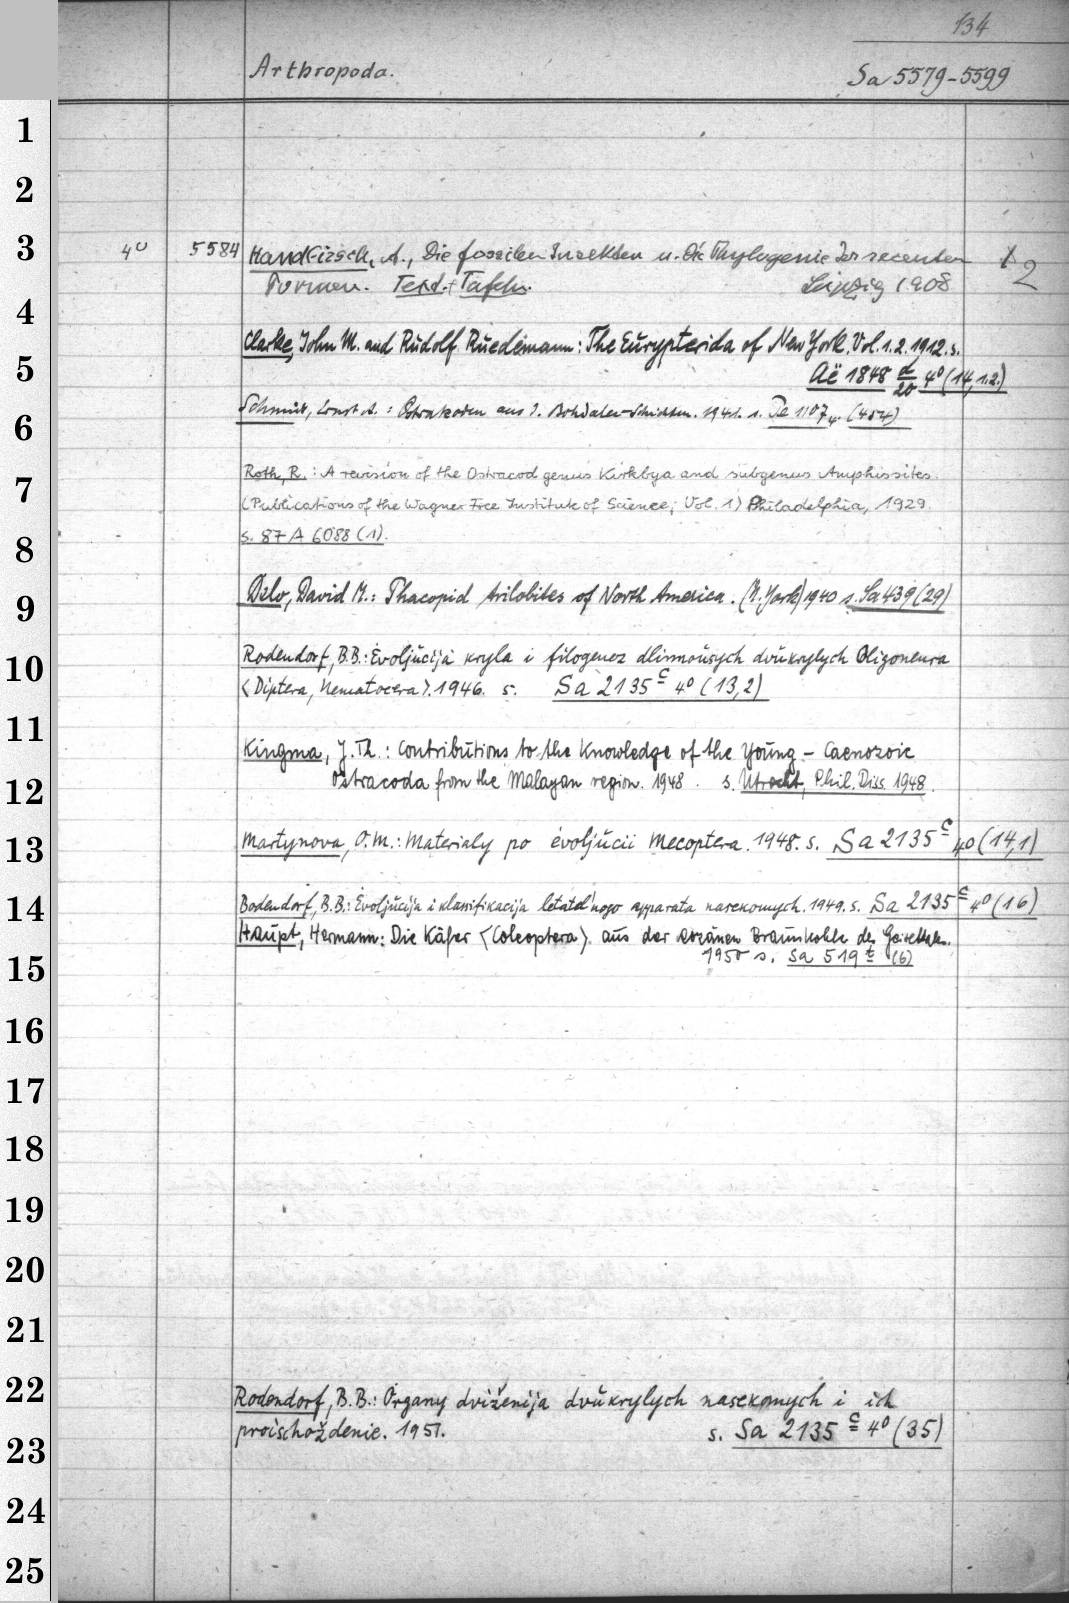 134
Arthropoda. Sa 5579-5599
1
2
3
4
5
6
7
8
9
10
11
12
13
14
15
16
17
18
19
20
21
22
23
24
25
4° 5584 Handlirsch, A., Die fossilen Insekten u. die Phylogenie der recenten 2
Formen. Text. + Tafeln. Leipzig 1908
Clarke, John M. and Rudolf Ruedemann: The Eurypterida of New York. Vol. 1. 2. 1912. s.
Aë 1848 d/20 4° (14, 1.2.)
Schmidt, Ernst A.: Ostrakoden aus d. Bohdalec-Schichten. 1941. s. 1107 4° (454)
Roth, R.: A revision of the Ostracod genus Kirkbya and subgenus Amphissites.
(Publications of the Wagner Free Institute of Science; Vol. 1) Philadelphia, 1929.
s. 87 A 6088 (1).
Delo, David M.: Phacopid trilobites of North America. (N. York) 1940 s. Sa 439 (29)
Rodendorf, B.B.: Évoljúcija kryla i filogenez dlinnoúsych dvúkrylych Oligoneura
<Diptera, Nematocera>. 1946. s. Sa 2135 c 4° (13,2)
Kingma, J. Th.: Contributions to the Knowledge of the Young - Caenozoic
Ostracoda from the Malayan region. 1948. s. Utrecht, Phil. Diss. 1948.
Martynova, O.M.: Materialy po évoljúcii Mecoptera. 1948. s. Sa 2135 c 4° (14,1)
Rodendorf, B.B.: Évoljúcija i klassifikacija letatel'nogo apparata nasekomych. 1949. s. Sa 2135 c 4° (16)
Haupt, Hermann: Die Käfer <Coleoptera> aus der eozänen Braunkohle des Geiseltales.
1950 s. Sa 519 t (6)
Rodendorf, B.B.: Organy dviženija dvúkrylych nasekomych i ich
proischoždenie. 1951. s. Sa 2135 c 4° (35)